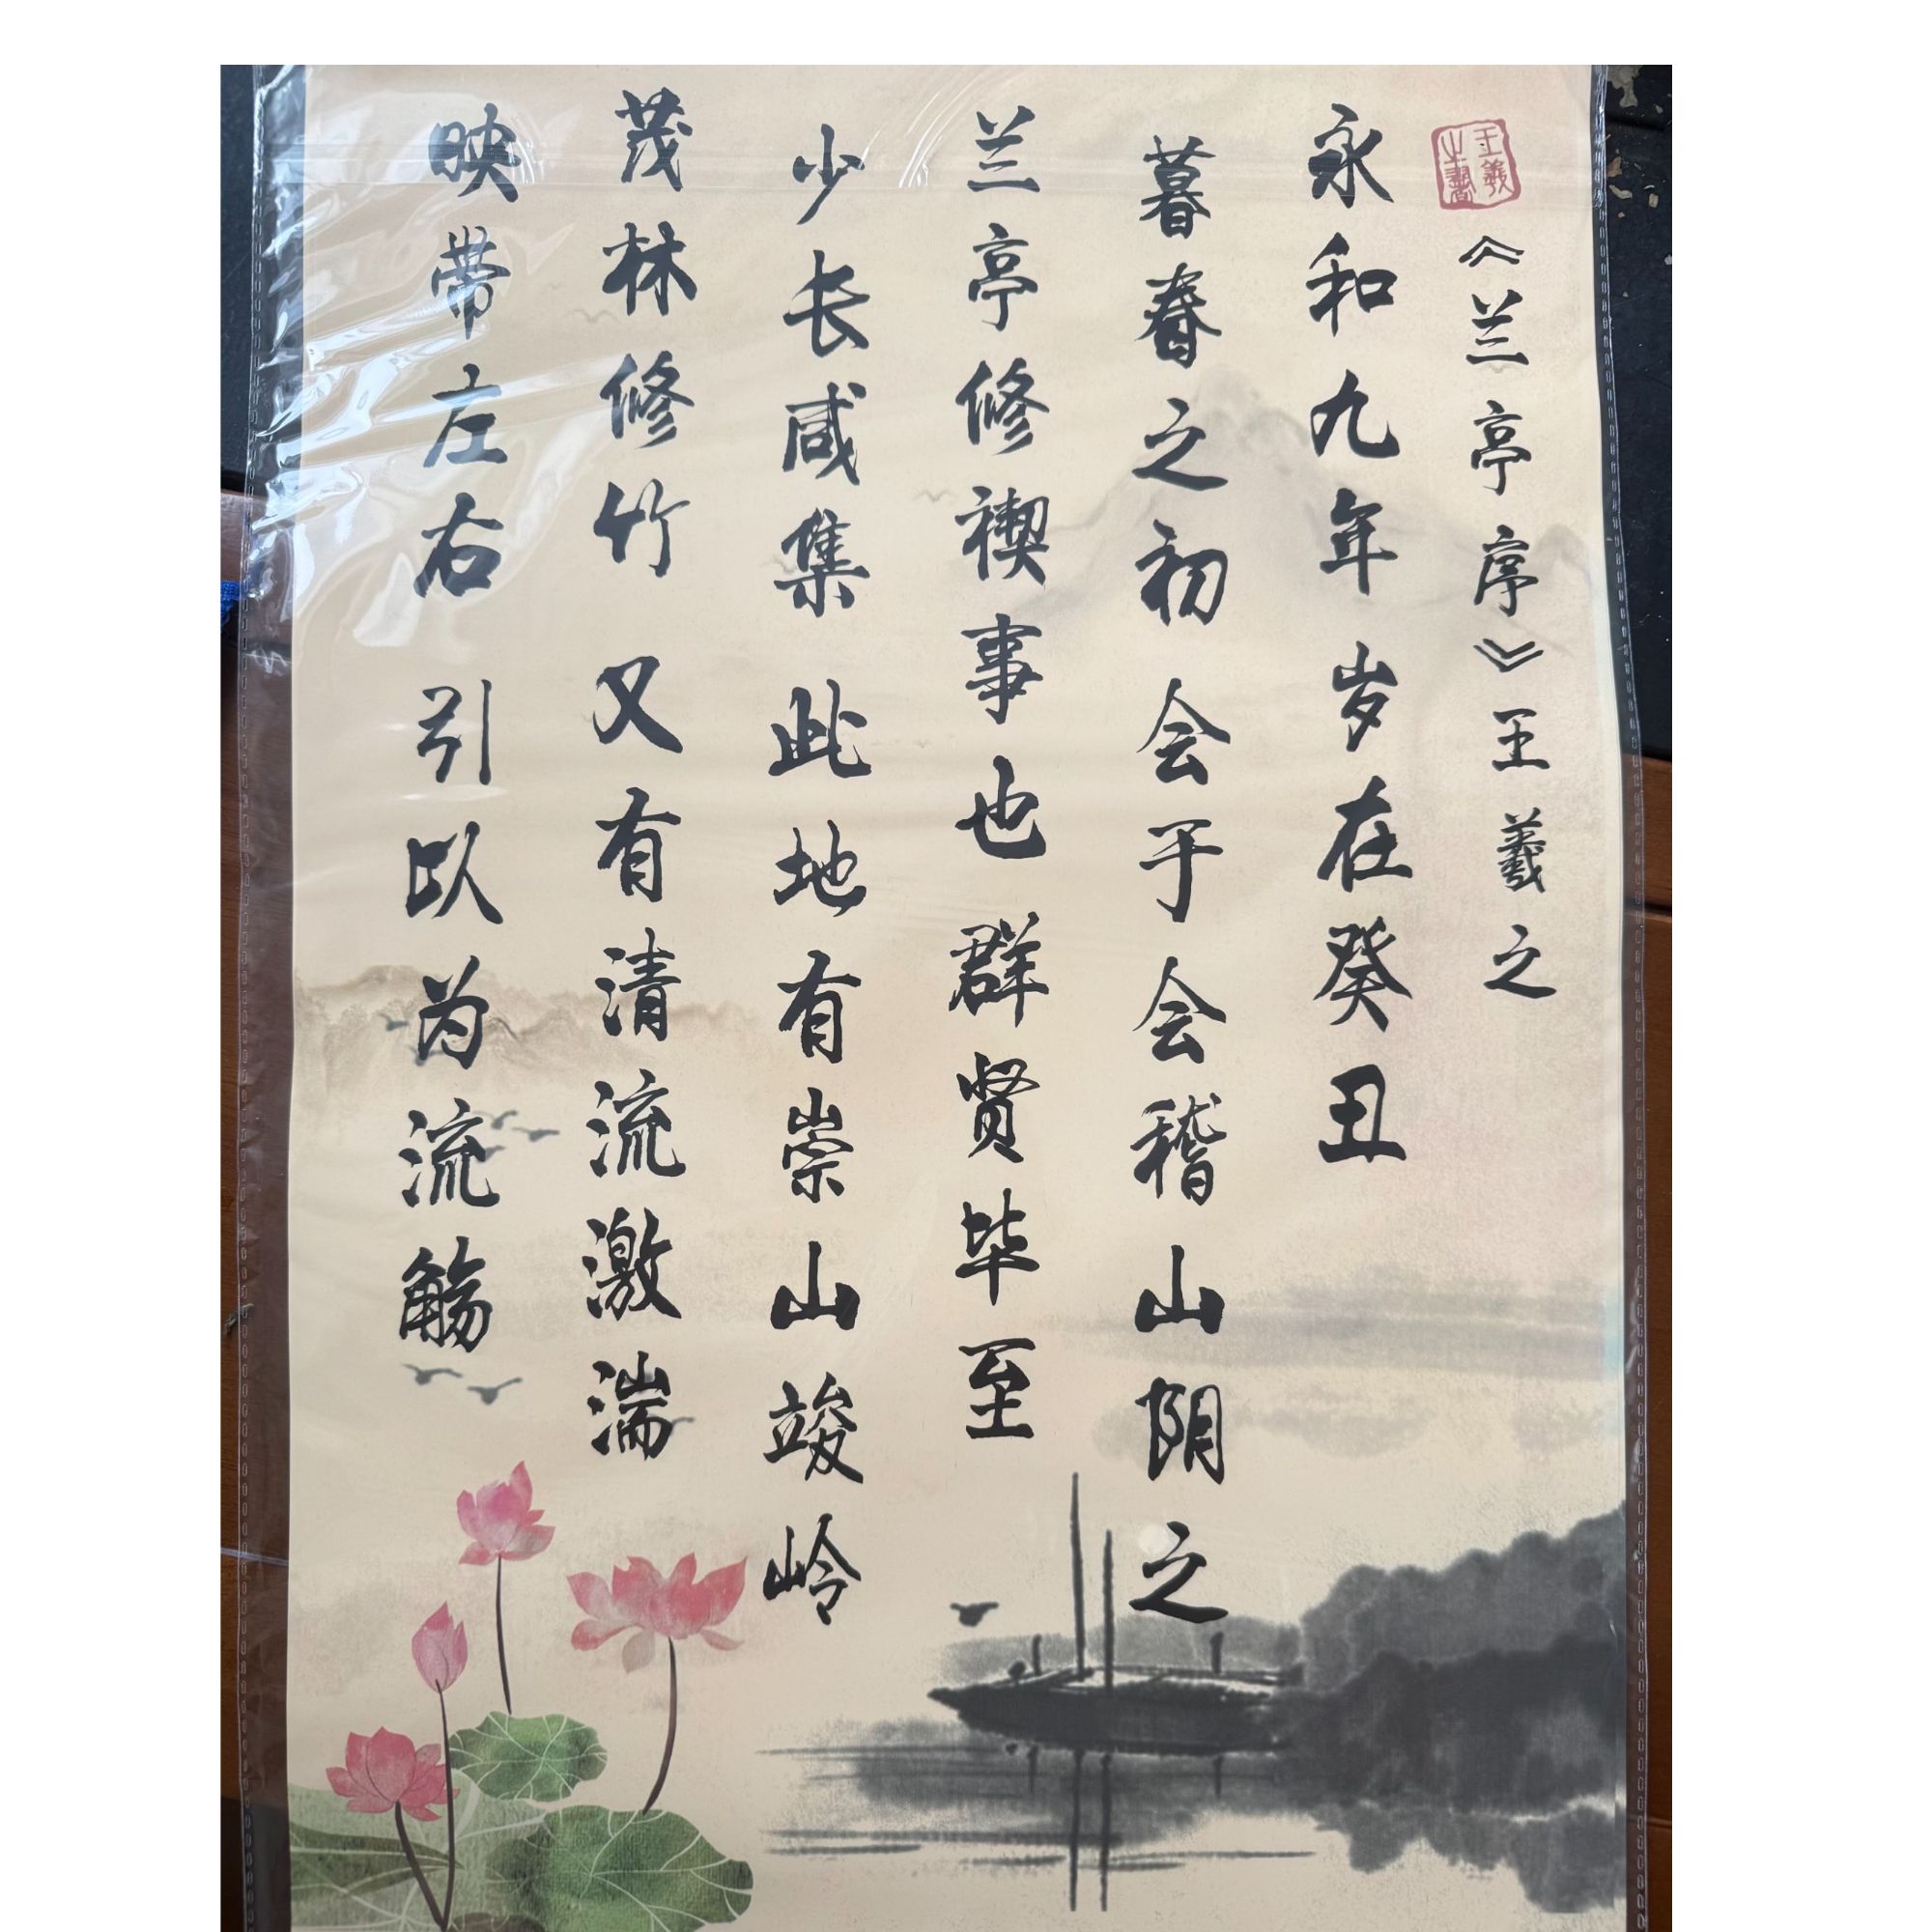 王羲之书
《兰亭序》王羲之
永和九年 岁在癸丑
暮春之初 会于会稽山阴之
兰亭 修禊事也 群贤毕至
少长咸集 此地有崇山竣岭
茂林修竹 又有清流激湍
映带左右 引以为流觞